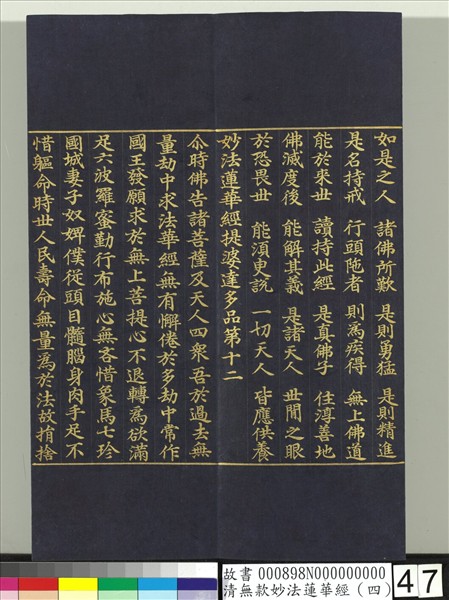 如是之人　諸佛所歎　是則勇猛　是則精進
是名持戒　行頭陁者　則為疾得　無上佛道
能於來世　讀持此經　是真佛子　住淳善地
佛滅度後　能解其義　是諸天人　世間之眼
於恐畏世　能須臾說　一切天人　皆應供養
妙法蓮華經提婆達多品第十二
尒時佛告諸菩薩及天人四衆吾於過去無
量劫中求法華經無有懈倦於多劫中常作
國王發願求於無上菩提心不退轉為欲滿
足六波羅蜜勤行布施心無吝惜象馬七珍
國城妻子奴婢僕從頭目髓腦身肉手足不
惜軀命時世人民壽命無量為於法故捐捨
故書 000898N000000000
清無款妙法蓮華經（四）
47